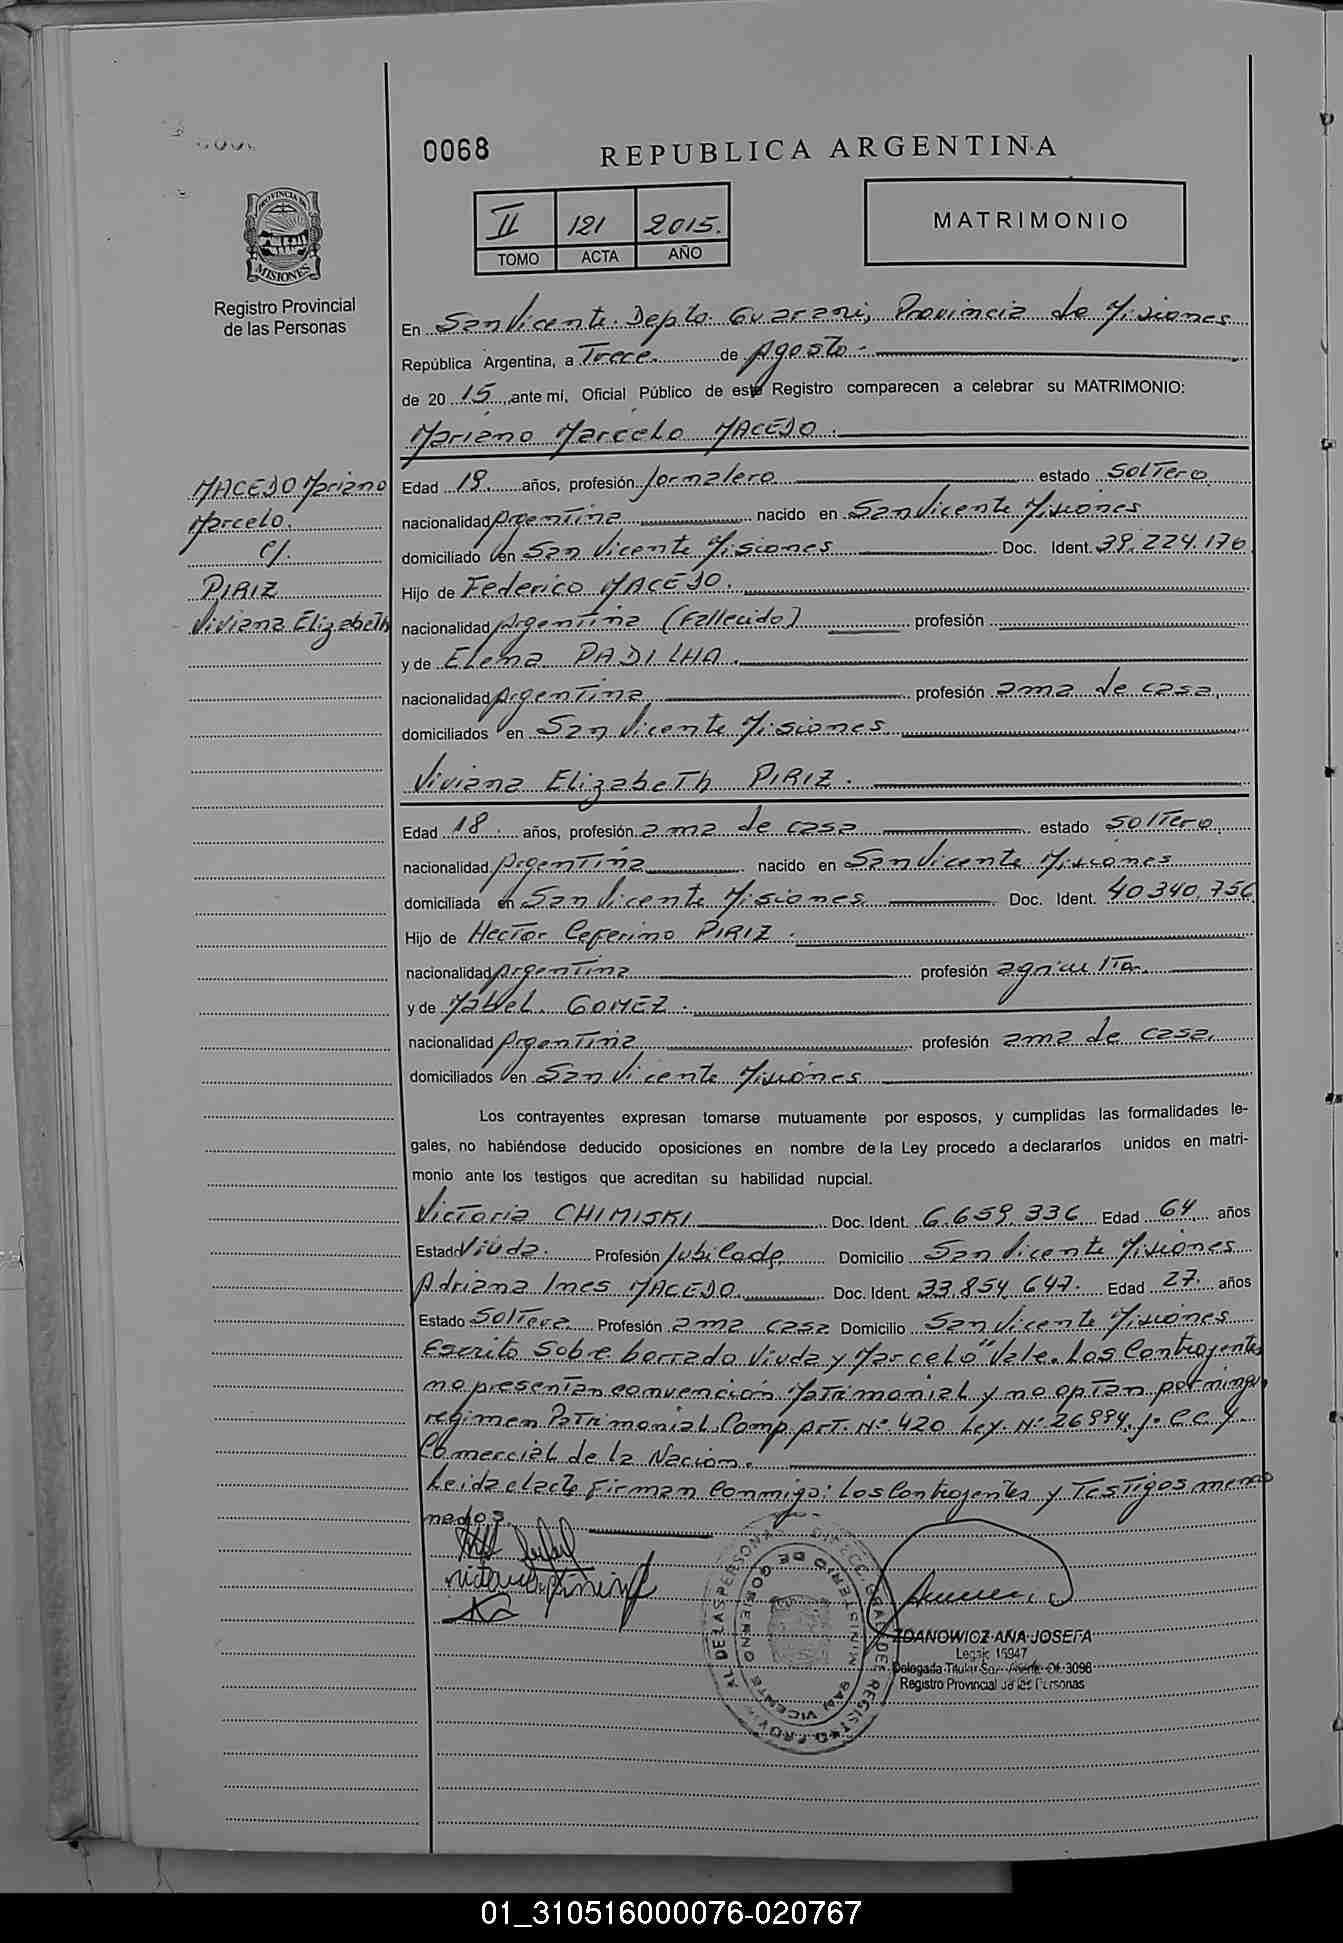 0068
REPUBLICA ARGENTINA
II 121 2015.
TOMO ACTA AÑO
MATRIMONIO
PROVINCIA DE
MISIONES
Registro Provincial
de las Personas
En San Vicente. Depto. Guarani, Provincia de Misiones
República Argentina, a Trece. de Agosto.
de 20 15 ante mí, Oficial Público de este Registro comparecen a celebrar su MATRIMONIO:
Mariano Marcelo MACEDO.
MACEDO Mariano
Marcelo.
c/.
PIRIZ
Viviana Elizabeth
Edad 19. años, profesión Jornalero estado SolTero
nacionalidad ArgenTina nacido en San Vicente Misiones
domiciliado en San Vicente Misiones Doc. Ident. 39.224.176
Hijo de Federico MACEDO.
nacionalidad ArgenTina (Fallecido) profesión
y de Elena PADILHA.
nacionalidad ArgenTina profesión ama de casa,
domiciliados en San Vicente Misiones
Viviana ElizabeTh PIRIZ.
Edad 18. años, profesión ama de casa estado SolTero,
nacionalidad ArgenTina nacido en San Vicente Misiones
domiciliada en San Vicente Misiones Doc. Ident. 40.340.756
Hijo de HecTor Ceferino PIRIZ.
nacionalidad ArgenTina profesión agriculTor.
y de Mabel. GOMEZ.
nacionalidad ArgenTina profesión ama de casa,
domiciliados en San Vicente Misiones
Los contrayentes expresan tomarse mutuamente por esposos, y cumplidas las formalidades le-
gales, no habiéndose deducido oposiciones en nombre de la Ley procedo a declararlos unidos en matri-
monio ante los testigos que acreditan su habilidad nupcial.
VicToria CHIMISKI Doc. Ident. 6.659.336 Edad 64 años
Estado Viuda. Profesión Jubilada, Domicilio San Vicente Misiones
Adriana Ines MACEDO. Doc. Ident. 33.854.647. Edad 27. años
Estado SolTera Profesión ama casa Domicilio San Vicente Misiones
Escrito Sobre borrado Viuda y Marcelo" Vale. Los Contrayentes
no presenTan convención MaTrimonial y no opTan por ningu
regimen PaTrimonial. Comp. ArT. Nº 420 Ley. Nº 26994. J. C.C. y
Comercial de la Nación.
Leida el acta Firman Conmigo: Los Contrayentes y TesTigos mencio
nados.
ZDANOWICZ ANA JOSEFA
Legajo 15947
Delegada Titular San Vicente Of. 3096
Registro Provincial de las Personas
MINISTERIO DE GOBIERNO
SAN VICENTE
01_310516000076-020767